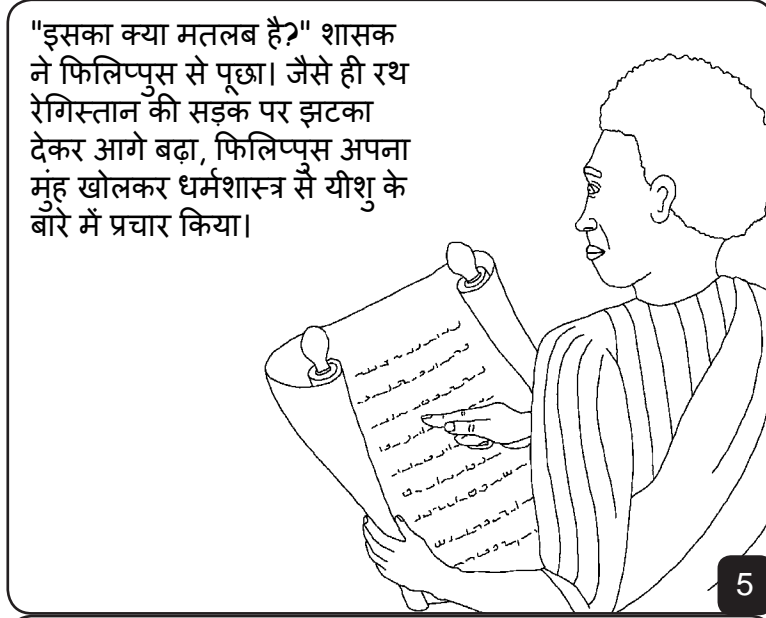 "इसका क्या मतलब है?" शासक
ने फिलिप्पुस से पूछा। जैसे ही रथ
रेगिस्तान की सड़क पर झटका
देकर आगे बढ़ा, फिलिप्पुस अपना
मुंह खोलकर धर्मशास्त्र से यीशु के
बारे में प्रचार किया।
5